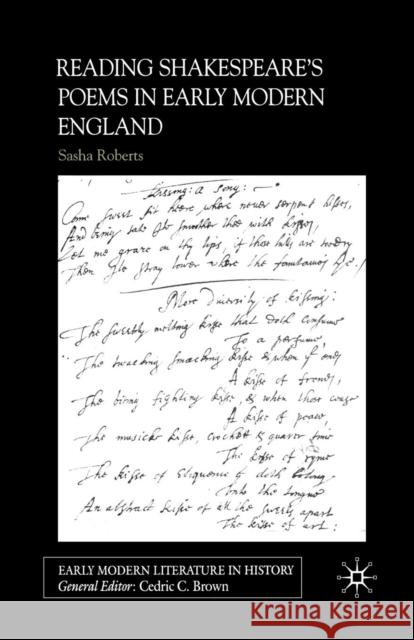 READING SHAKESPEARE'S
POEMS IN EARLY MODERN
ENGLAND
Sasha Roberts
Kissing: a Song:
Come sweet sit heere where never serpent hisses,
And being sate Ile smoother thee with kisses,
Let me graze on thy lips, if those hills are
Then Ile stray lower where the fountaines lye./
More Diversity of kissing:
The sweetly melting kisse that doth consume
To a perfume,
The smacking kisse & when if ends
A kisse of frends,
The kisse, & when those cease
A kisse of peace,
The musicke kisse, crochet & quaver time
The kisse of ryme
The kisse of Eloquence doth belong
Unto the tongue
An abstract kisse of all the sweets apart
The kisse of art:
EARLY MODERN LITERATURE IN HISTORY
General Editor: Cedric C. Brown